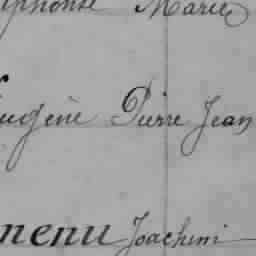 lphonse Marie
Eugène Pierre Jean
nenu Joachim